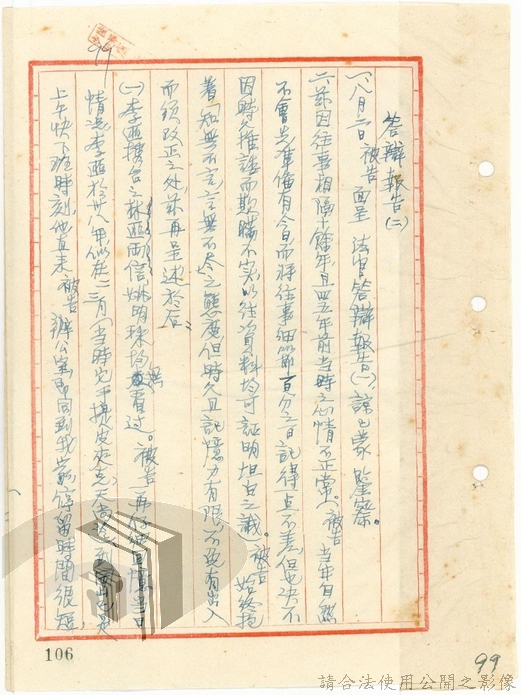 答辯報告(二)
一、八月二日被告面呈 法官答辯報告(一)諒已蒙鑒察。
二、茲因往事相隔十餘年且四五年前當時之心情不正常。被告當年自然
不會先準備有今日而將往事細節百分之百記得一点不差但也決不
因時久推諉而欺瞞不實以往資料均可証明坦白之誠,被告始終抱
著「知無不言,言無不尽」之態度但時久且記憶力有限,不要有出入
而須改正之处,茲再呈述於后:
(一)李 之 兩信姚明珠均 看過。被告再仔細回憶當日
情 李 於卅八年似在一二月(當時 手 皮
上午快下班時刻,他直来被告辦公室即同到我 停留時間很短,
106
99
99
請合法使用公開之影像